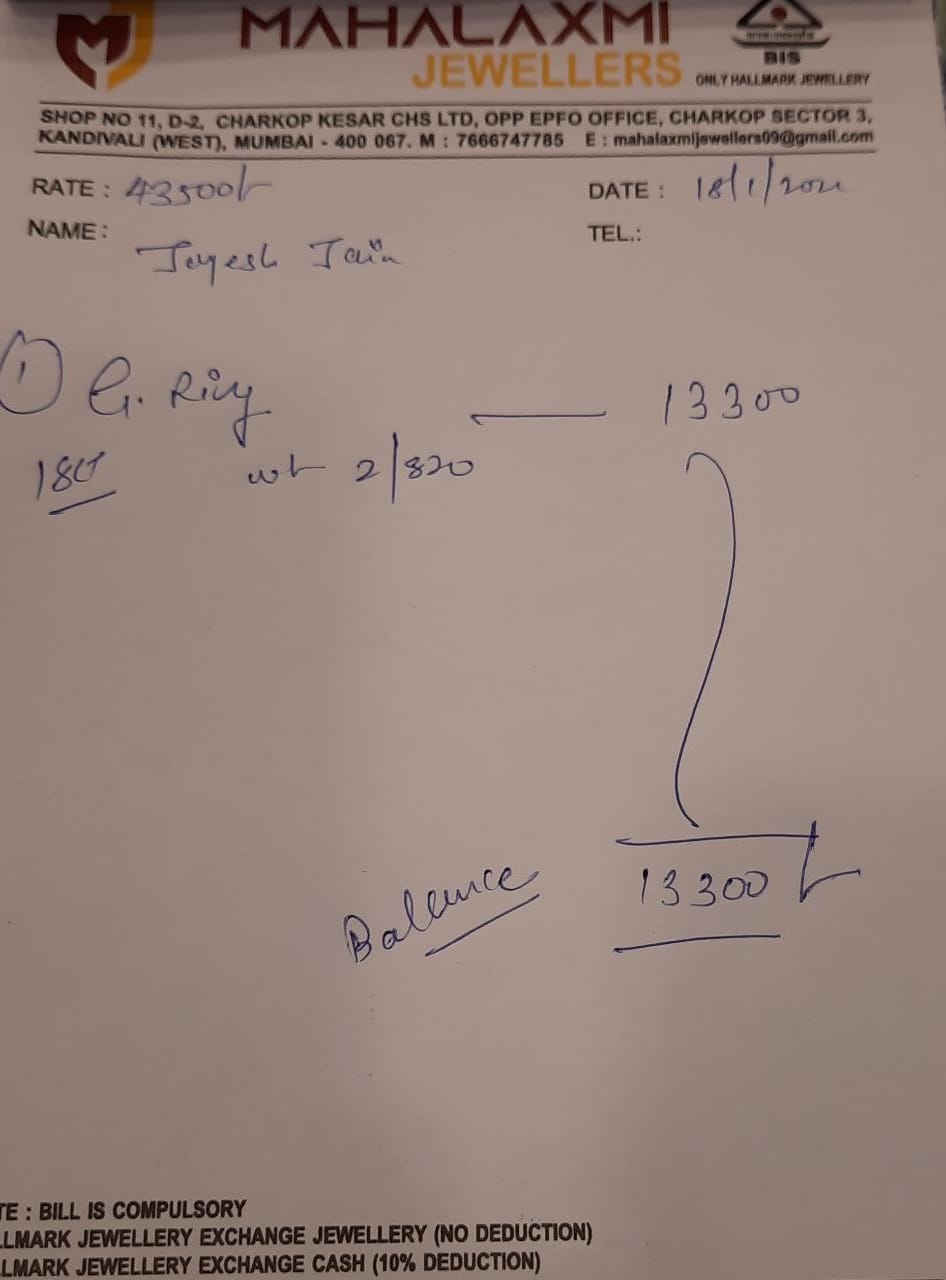 MAHALAXMI
JEWELLERS
BIS
ONLY HALLMARK JEWELLERY
SHOP NO 11, D-2, CHARKOP KESAR CHS LTD, OPP EPFO OFFICE, CHARKOP SECTOR 3,
KANDIVALI (WEST), MUMBAI - 400 067. M : 7666747785 E : mahalaxmijewellers09@gmail.com
RATE : 43500/- DATE : 18/1/202
NAME : TEL.:
Jayesh Jain
1 G. Ring — 13300
wt 2/820
Ballance 13300/-
TE : BILL IS COMPULSORY
LLMARK JEWELLERY EXCHANGE JEWELLERY (NO DEDUCTION)
LLMARK JEWELLERY EXCHANGE CASH (10% DEDUCTION)